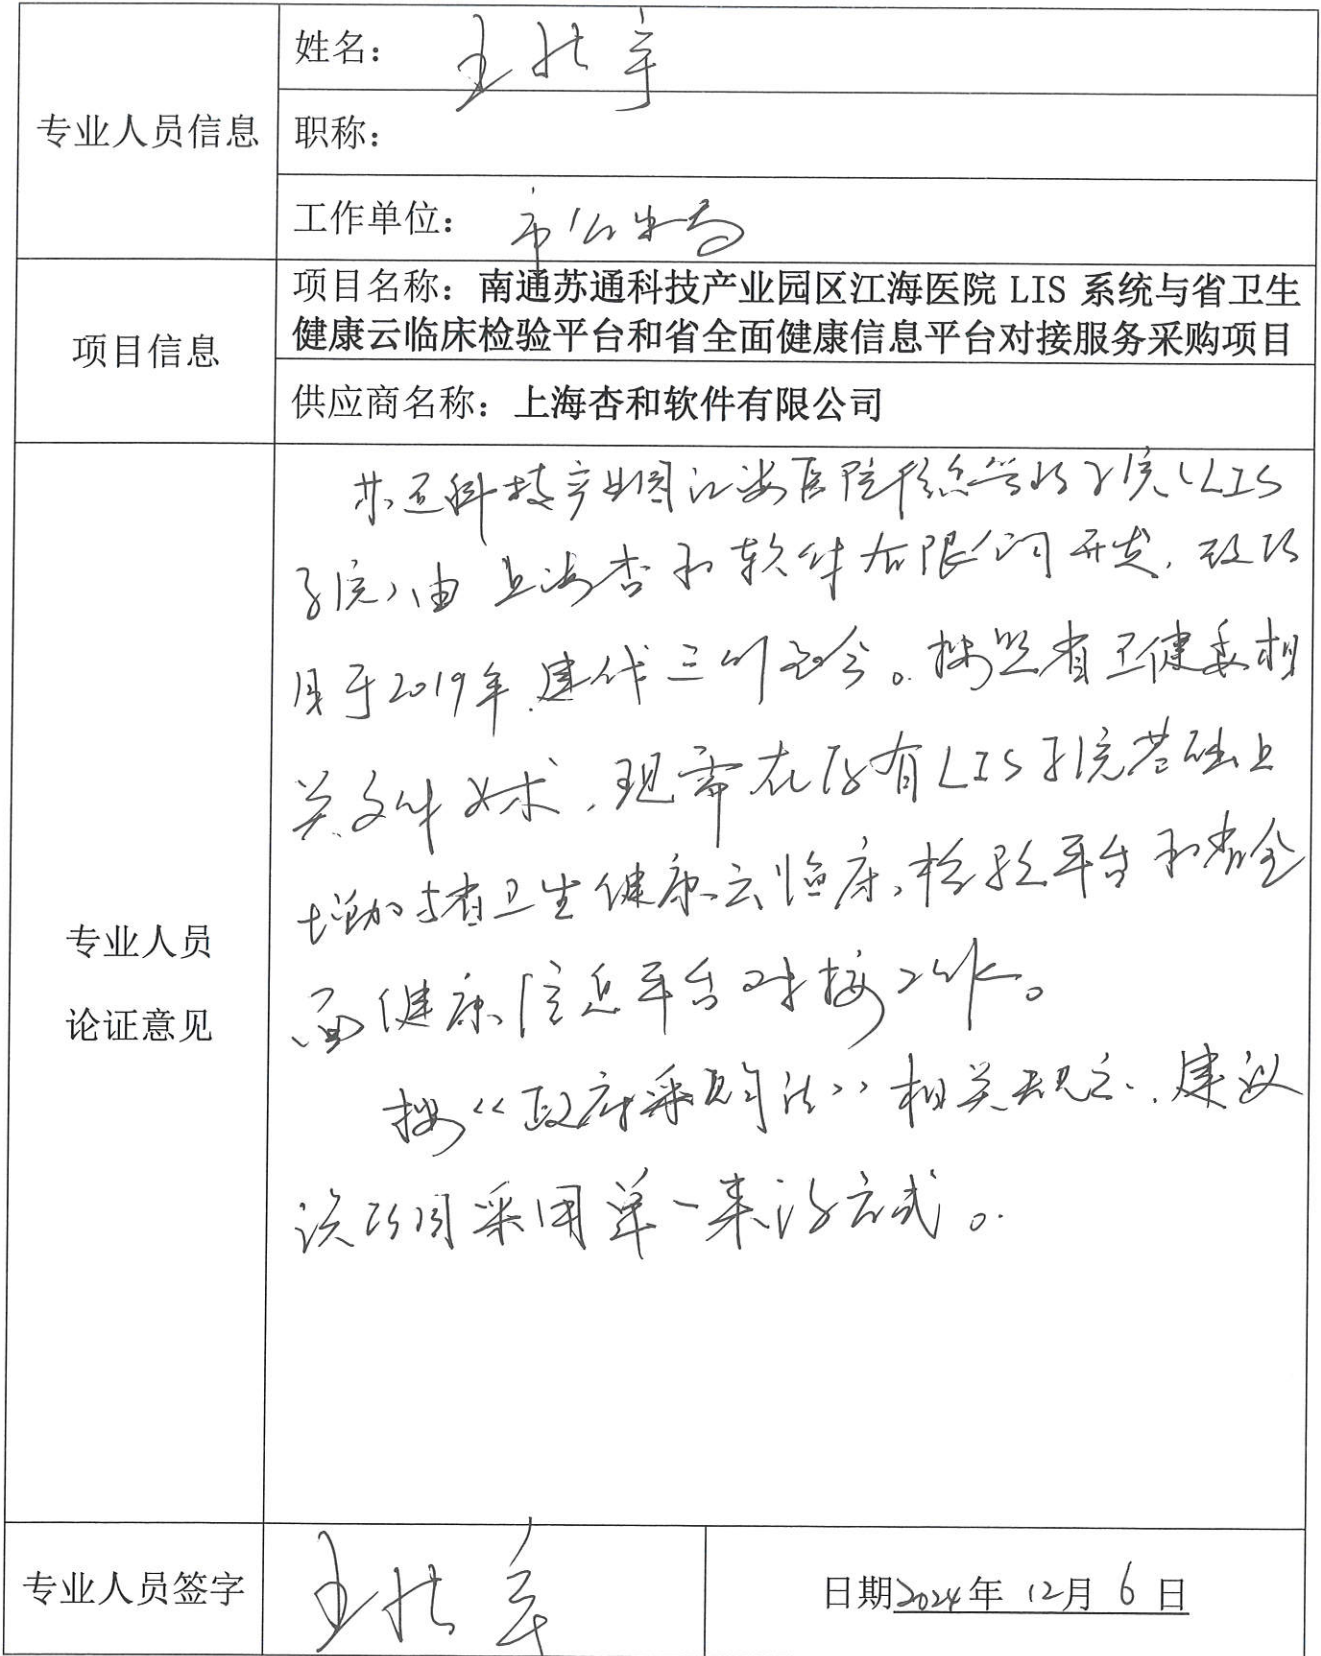 专业人员信息
姓名：王
职称：
工作单位：市公安局
项目信息
项目名称：南通苏通科技产业园区江海医院 LIS 系统与省卫生
健康云临床检验平台和省全面健康信息平台对接服务采购项目
供应商名称：上海杏和软件有限公司
专业人员
论证意见
苏通科技产业园江海医院检验管理系统（LIS
系统）由上海杏和软件有限公司开发，该项
目于2019年建成三川至今。按照省卫健委相
关文件要求，现需在原有LIS系统基础上
增加与省卫生健康云临床检验平台和省全
面健康信息平台对接工作。
按《政府采购法》相关规定，建议
该项目采用单一来源方式。
专业人员签字
王
日期2024年 12月 6 日